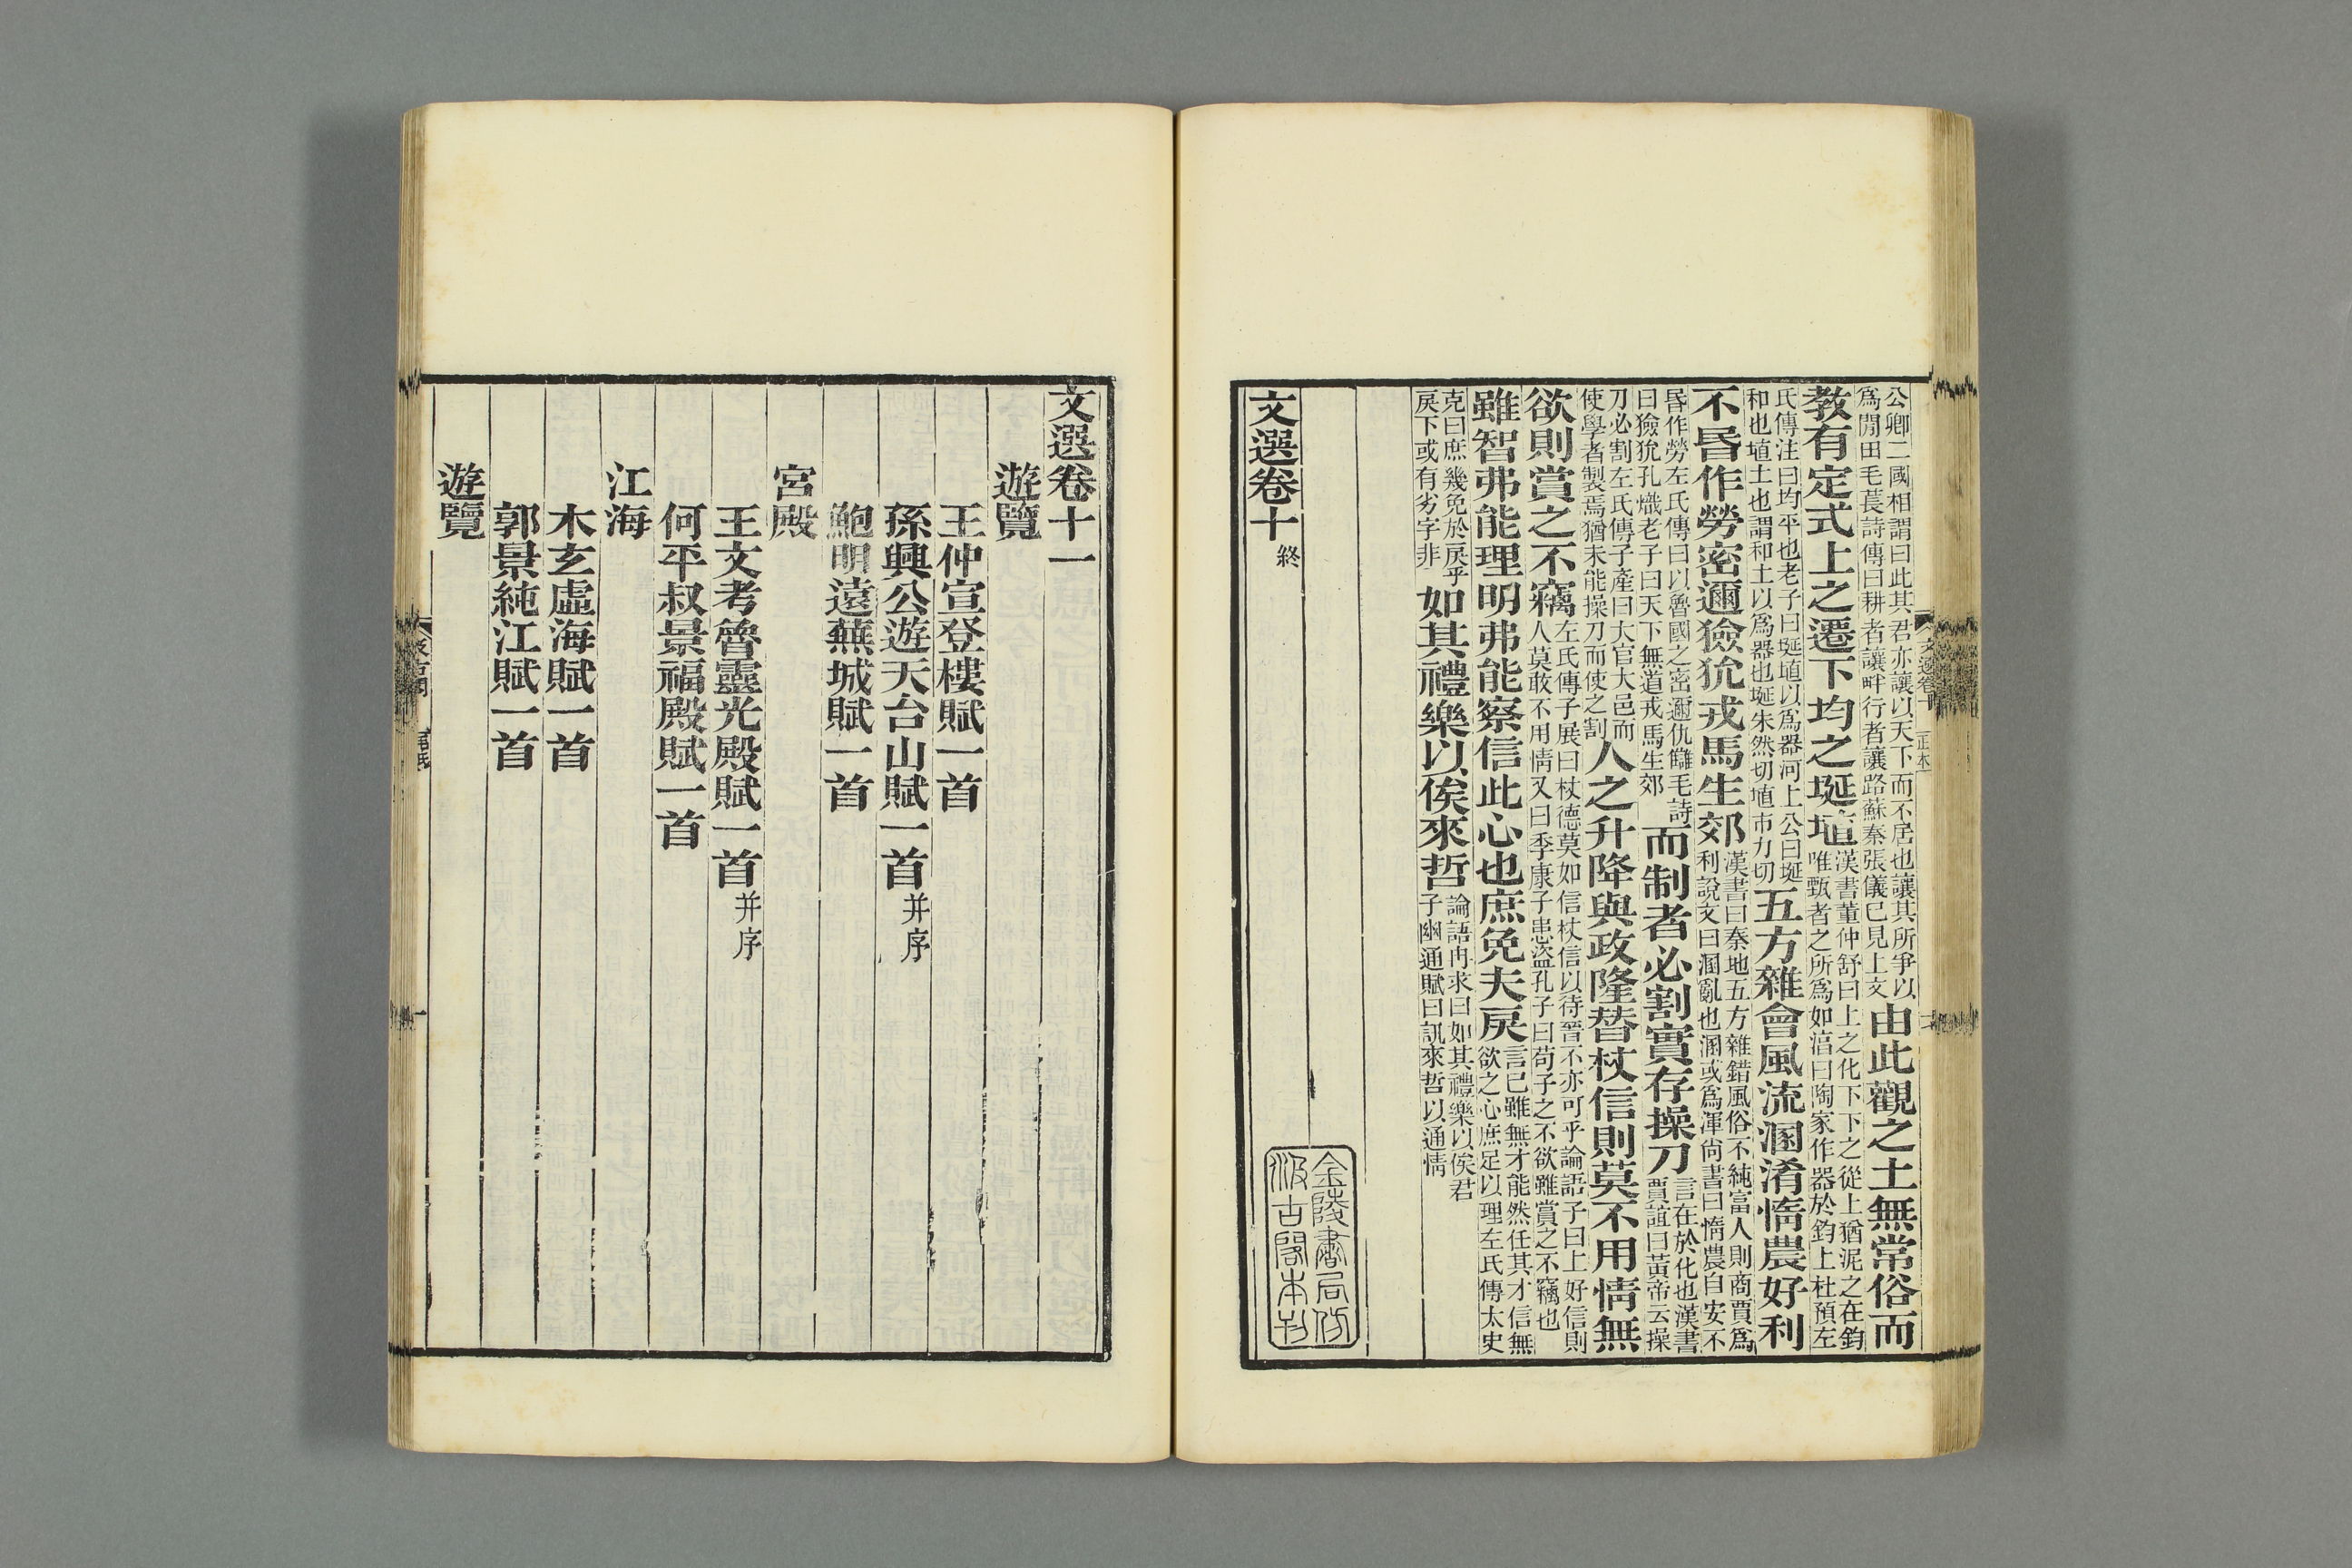 公卿二國相謂曰此其君亦讓以天下而不居也讓其所爭以
爲閒田毛萇詩傳曰耕者讓畔行者讓路蘇秦張儀已見上文
由此觀之土無常俗而
教有定式上之遷下均之埏埴
漢書董仲舒曰上之化下下之從上猶泥之在鈞
唯甄者之所爲如淳曰陶家作器於鈞上杜預左
氏傳注曰均平也老子曰埏埴以爲器河上公曰埏
和也埴土也謂和土以爲器也埏朱然切埴市力切
五方雜會風流溷淆惰農好利
不昬作勞密邇獫狁戎馬生郊
漢書曰秦地五方雜錯風俗不純富人則商賈爲
利說文曰溷亂也溷或爲渾尚書曰惰農自安不
昬作勞左氏傳曰以魯國之密邇仇讎毛詩
曰獫狁孔熾老子曰天下無道戎馬生郊
而制者必割實存操刀
言在於化也漢書
賈誼曰黃帝云操
刀必割左氏傳子產曰大官大邑而
使學者製焉猶未能操刀而使之割
人之升降與政隆替杖信則莫不用情無
欲則賞之不竊
左氏傳子展曰杖德莫如信杖信以待晉不亦可乎論語子曰上好信則
人莫敢不用情又曰季康子患盜孔子曰苟子之不欲雖賞之不竊也
雖智弗能理明弗能察信此心也庶免夫戾
言已雖無才能然任其才信無
欲之心庶足以理左氏傳太史
克曰庶幾免於戾乎
戾下或有劣字非
如其禮樂以俟來哲
論語冉求曰如其禮樂以俟君
子幽通賦曰訊來哲以通情
文選卷十 終
金陵書局仿
汲古閣本刊
文選卷十一
遊覽
王仲宣登樓賦一首
孫興公遊天台山賦一首并序
鮑明遠蕪城賦一首
宮殿
王文考魯靈光殿賦一首并序
何平叔景福殿賦一首
江海
木玄虛海賦一首
郭景純江賦一首
遊覽